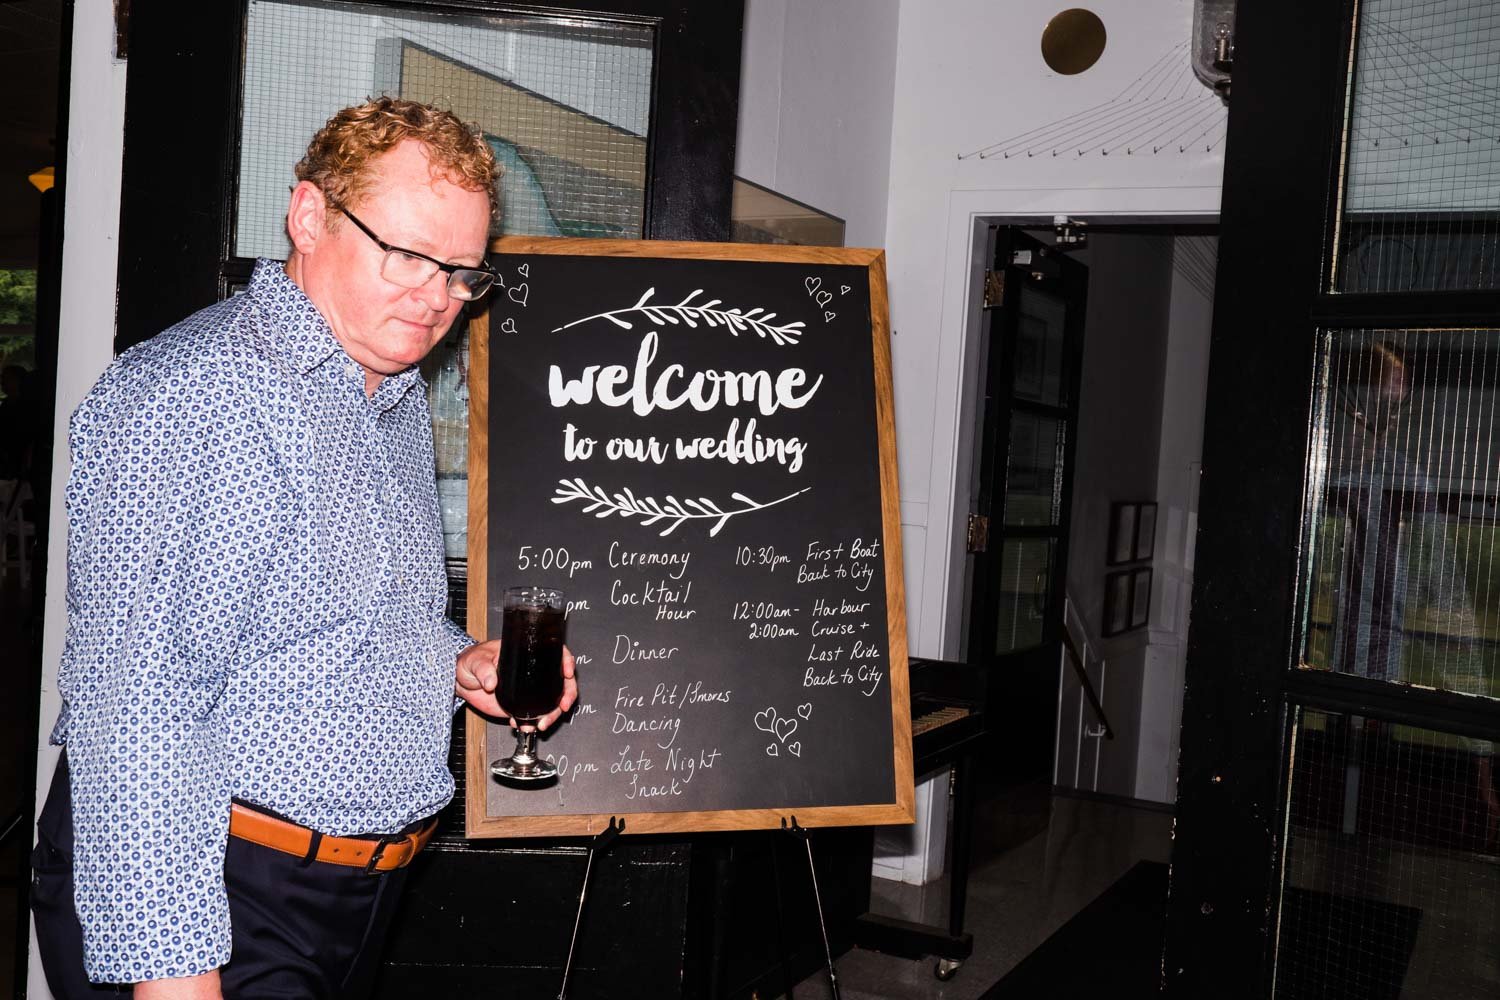 welcome
to our wedding
5:00pm Ceremony
pm Cocktail
Hour
Dinner
pm Fire Pit/Smores
Dancing
00pm Late Night
Snack
10:30pm First Boat
Back to City
12:00am- Harbour
2:00am Cruise +
Last Ride
Back to City